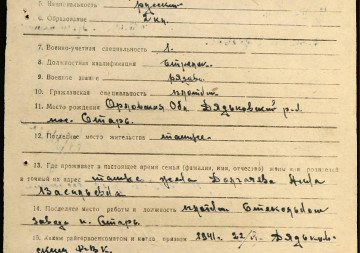 5. Национальность русский
6. Образование 2 кл.
7. Военно-учетная специальность 1.
8. Должностная квалификация стрелок
9. Военное звание рядов.
10. Гражданская специальность
11. Место рождения Орловская Обл. Дядьковский р-н.
пос. Старь.
12. Последнее место жительства также.
13. Где проживает в настоящее время семья (фамилия, имя, отчество) жены или родителей
и точный их адрес также жена
Васильевна
14. Последнее место работы и должность Стекольный
завод п. Старь.
15. Каким райвоенкоматом и когда призван 1941. 22 Дядьков-
ским РВК.